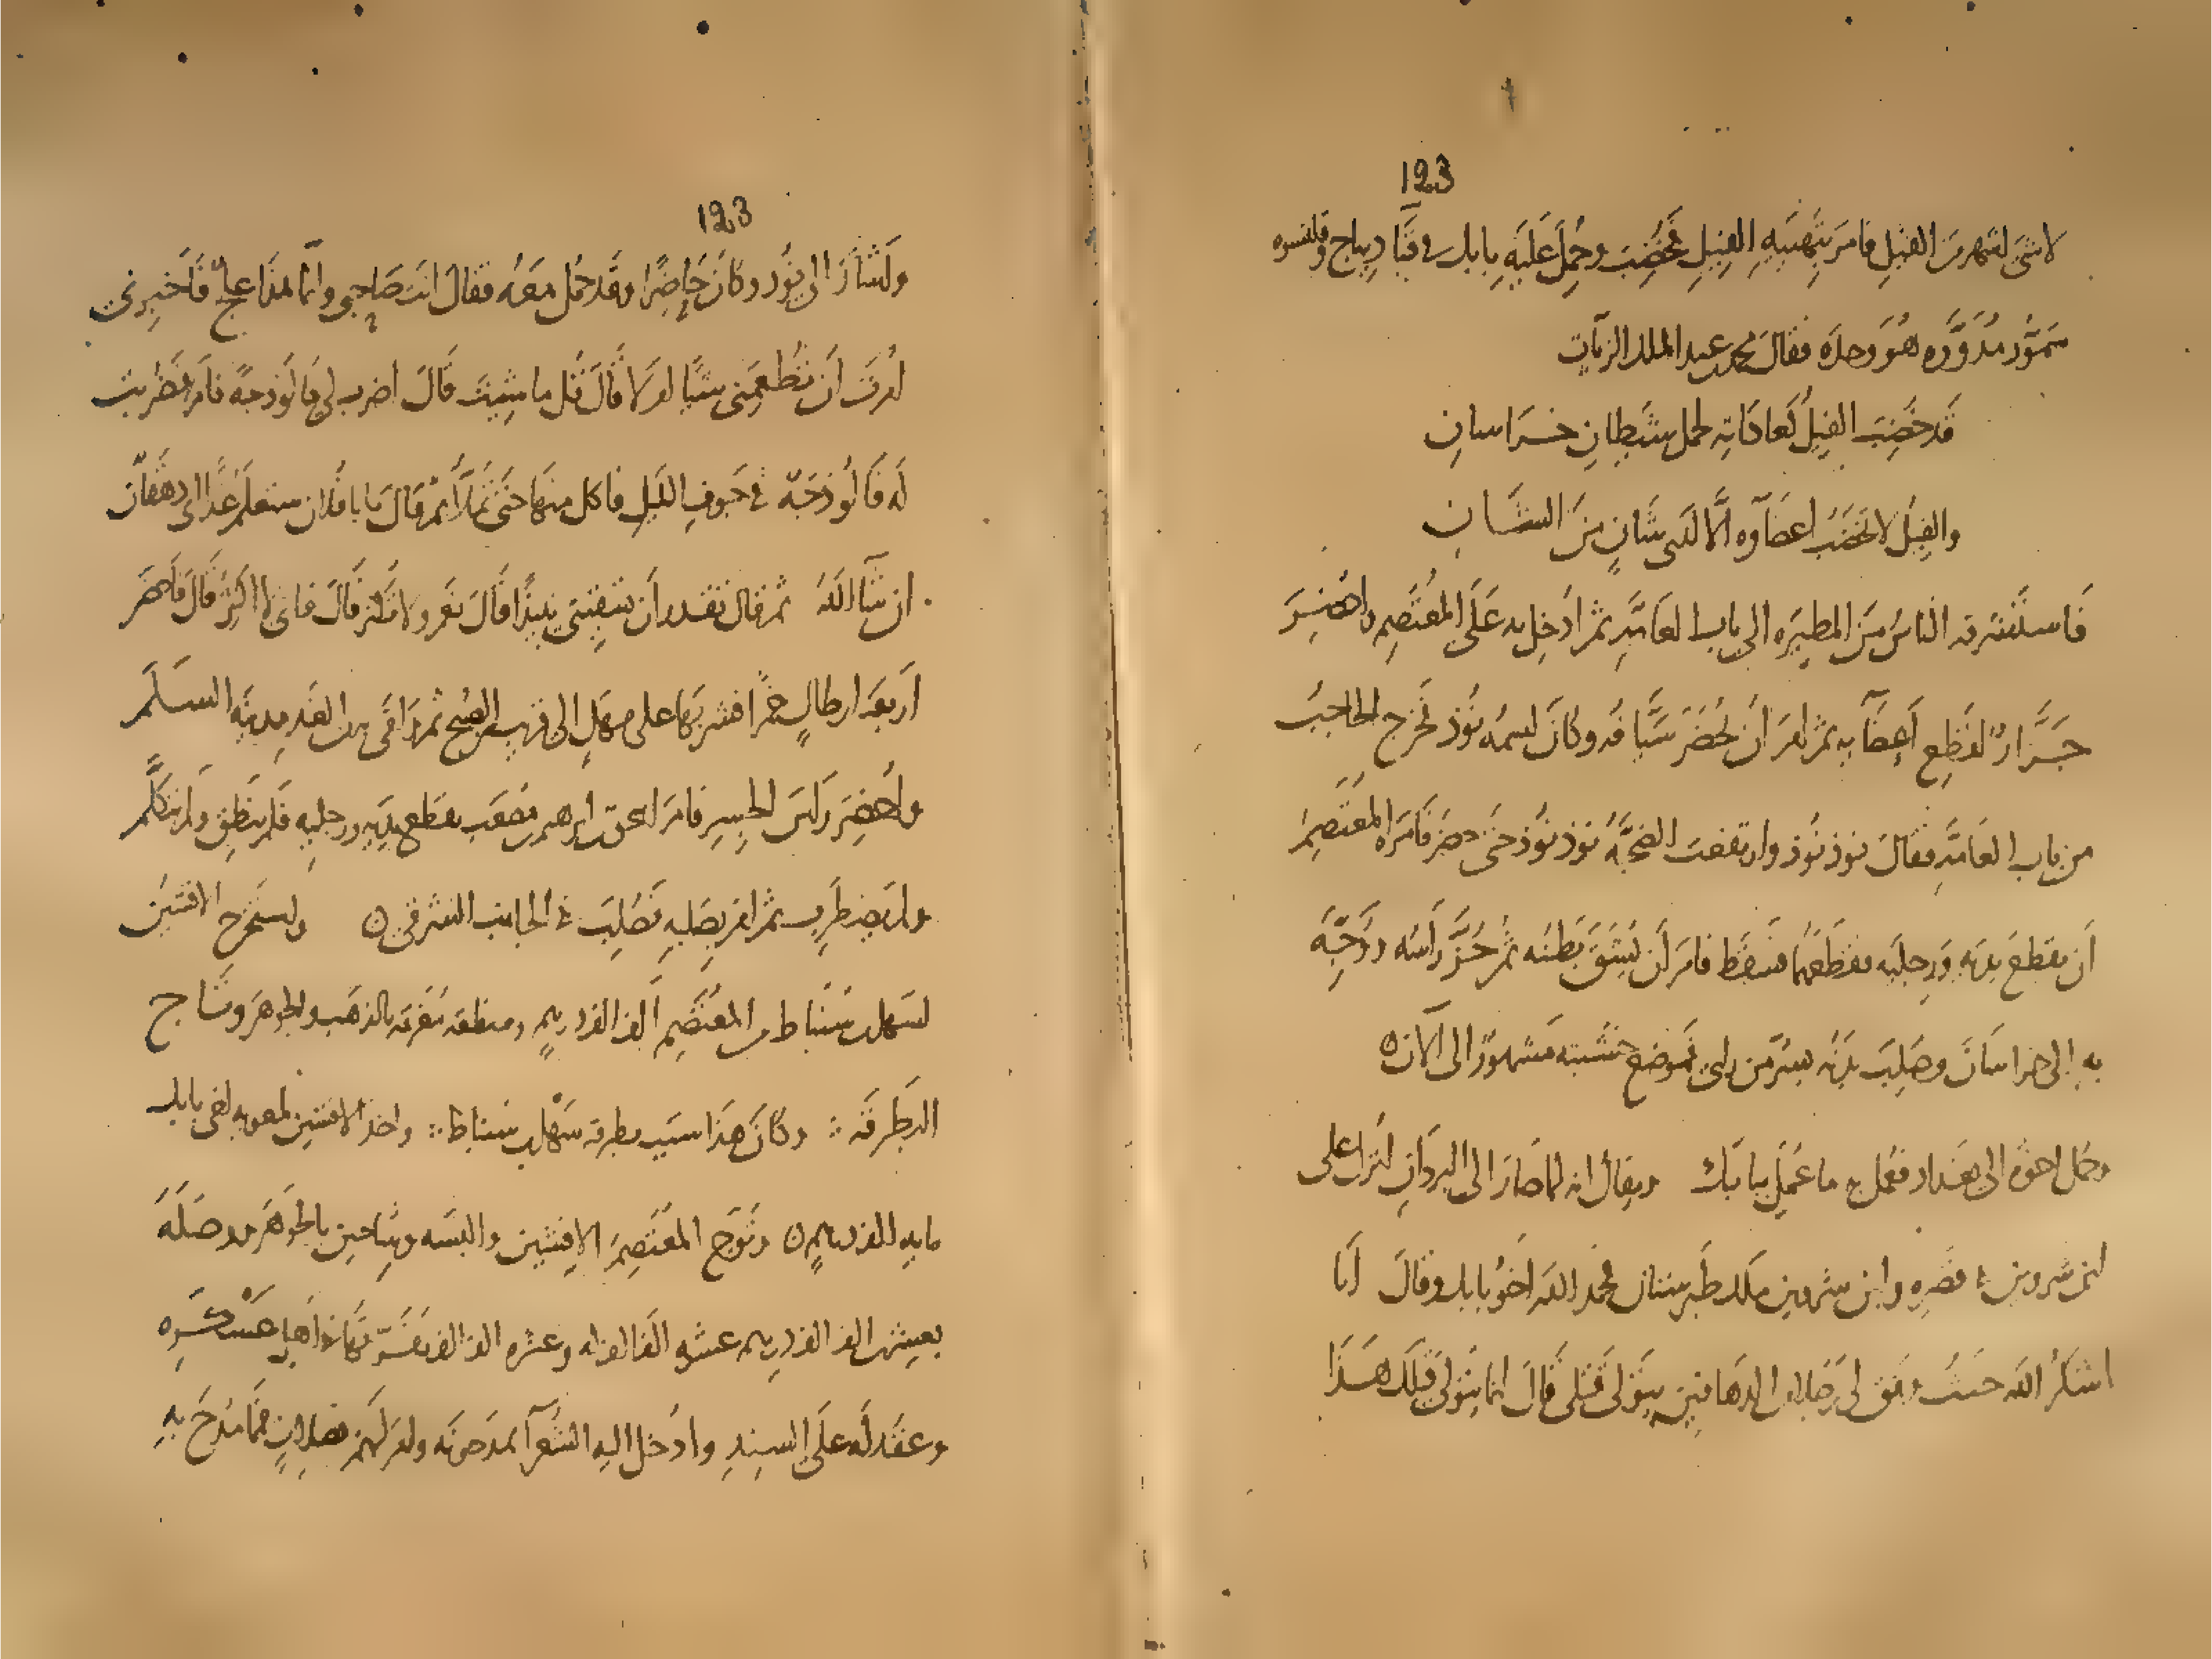 123
لا شى اشهر من الفيل فامر بتهييه الفيل فخضب وحمل عليه بابك في قبا ديباج وقلنسوه
سمور مدوره هو وحده فقال محمد بن عبد الملك الزيات
قد خضب الفيل كعاداته لحمل شيطان خراسان
والفيل لا تخضب اعضآوه الا لذى شان من الشان
فاستشرفه الناس من المطيره الى باب العامه ثم ادخل به على المعتصم واحضر
جزارا لقطع اعضآيه ثم امر ان يحضر سيافه وكان اسمه نوذ فخرج الحاجب
من باب العامه فقال نوذ نوذ وارتفعت الضجه نوذ نوذ حتى حضر فامره المعتصم
ان يقطع يديه ورجليه فقطعهما فسقط فامر ان يشق بطنه ثم حز راسه ووجه
به الى خراسان وصلب بدنه بسر من راى فموضع خشبته مشهور الى الآن ه
وحمل اخوه الى بغداد ففعل به ما عمل ببابك ويقال انه لما صار الى البردان انزل على
ابن شروين في قصره وابن شروين ملك طبرستان فحمد الله اخو بابك وقال انا
اشكر الله حيث وفق لى رجلا من الدهاقين يتولى قتلى قال انما يتولى قتلك هذا
123
واشار الى نوذ وكان حاضرا وقد حمل معه فقال انت صاحبى وانما هذا علج فاخبرنى
امرت ان تطعمنى شيا ام لا قال قل ما شيت قال اضرب لى فالوذجة فامر فضربت
له فالوذجة في جوف الليل فاكل منها حتى تملأ ثم قال يا با فلان ستعلم غدا انى دهقان
ان شآ الله ثم قال تقدر ان تسقينى نبيذا قال نعم ولا تكثر قال فانى لا اكثر قال فاحضر
اربعة ارطال خمرا فشربها على مهل الى قريب من الصبح ثم وافى به الغد مدينة السلم
واحضر راس الجسر فامر اسحق بن ابرهيم بن مصعب بقطع يديه ورجليه فلم ينطق ولم يتكلم
ولم يضطرب ثم امر بصلبه فصلب في الجانب الشرقى ه واستخرج الافشين
لسهل بن سنباط من المعتصم الف الف درهم ومنطقه مغرقه بالذهب والجوهر وتاج
البطرقه ∴ وكان هذا سبب بطرقة سهل بن سنباط ∴ واخذ الافشين لمعويه اخى بابك
مايه الف درهم ه وتوج المعتصم الافشين والبسه وشاحين بالجوهر ووصله
بعشرين الف الف درهم عشره الف الف له وعشره الف الف يفرقها في اهل عسكره
وعقد له على السند وادخل اليه الشعرآ يمدحونه وامر لهم بصلات فمما مدح به